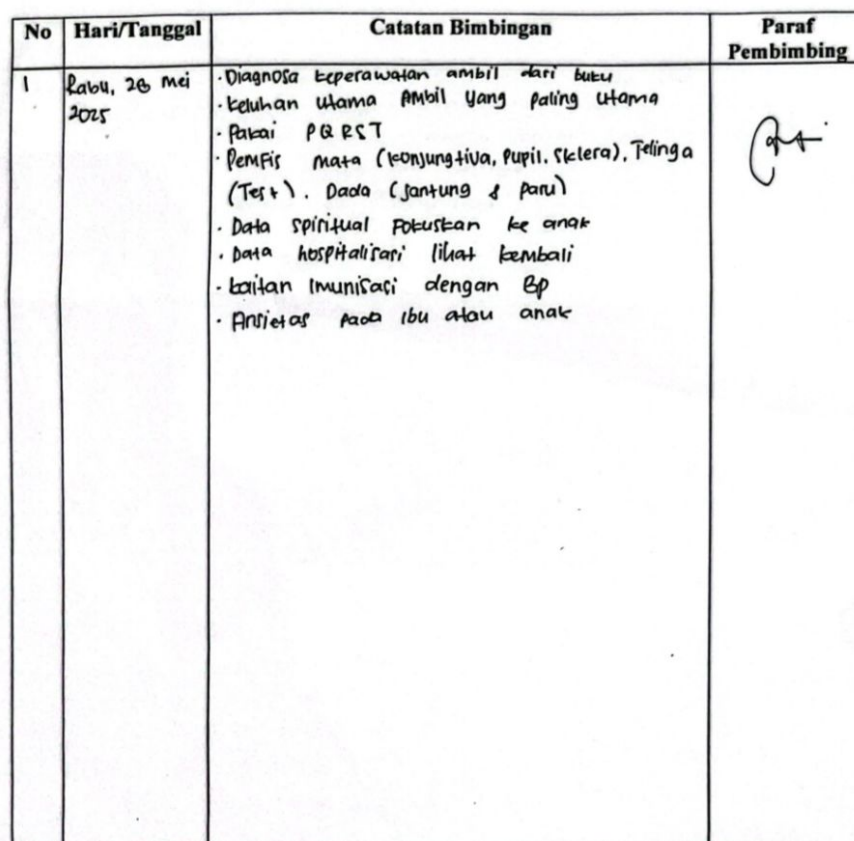 No Hari/Tanggal Catatan Bimbingan Paraf Pembimbing
1 Rabu, 28 Mei 2025
· Diagnosa keperawatan ambil dari buku
· Keluhan utama Ambil yang paling utama
· Pakai PQRST
· Pemfis mata (konjungtiva, Pupil, Sklera), Telinga
(Test). Dada (Jantung & paru)
· Data spiritual Fokuskan ke anak
· Data hospitalisasi lihat kembali
· kaitan Imunisasi dengan Bp
· Ansietas pada ibu atau anak